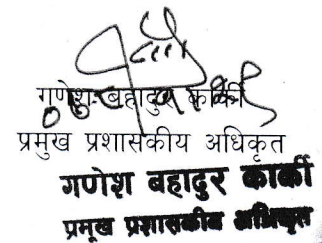 गणेश बहादुर कार्की
प्रमुख प्रशासकीय अधिकृत
गणेश बहादुर कार्की
प्रमुख प्रशासकीय अधिकृत